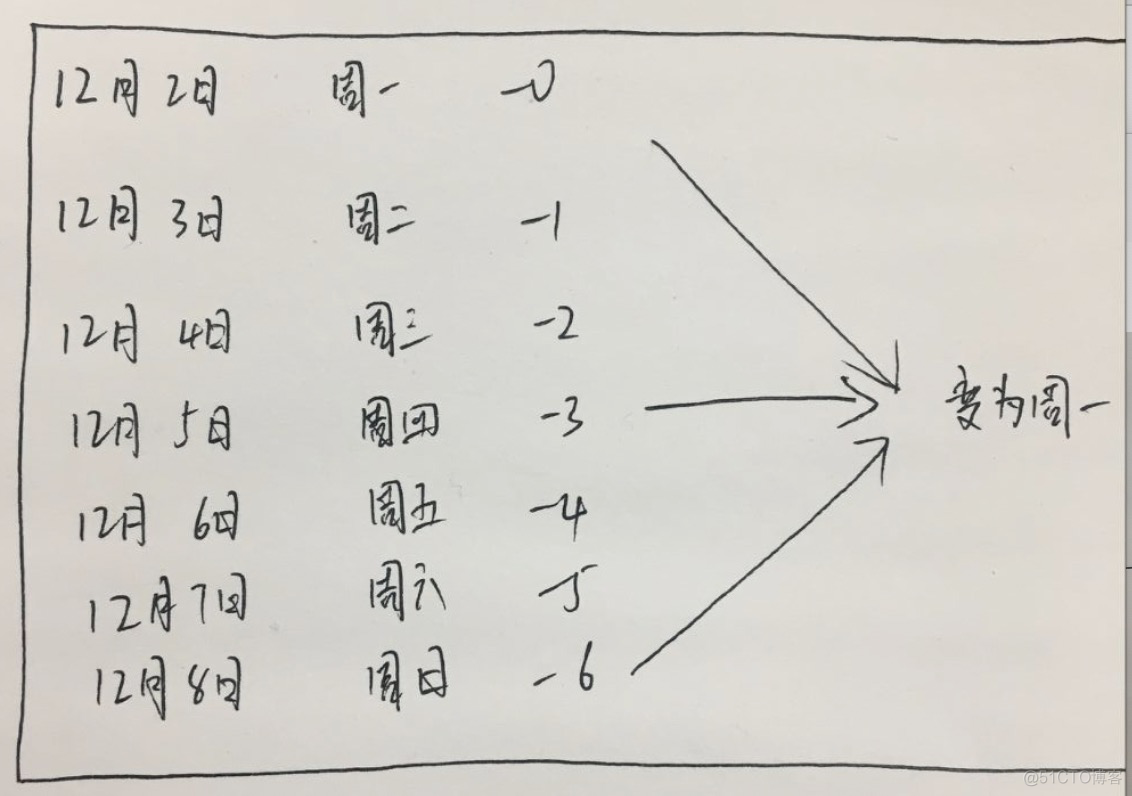 12月 2日 周一 -0
12月 3日 周二 -1
12月 4日 周三 -2
12月 5日 周四 -3
变为周一
12月 6日 周五 -4
12月 7日 周六 -5
12月 8日 周日 -6
@51CTO博客